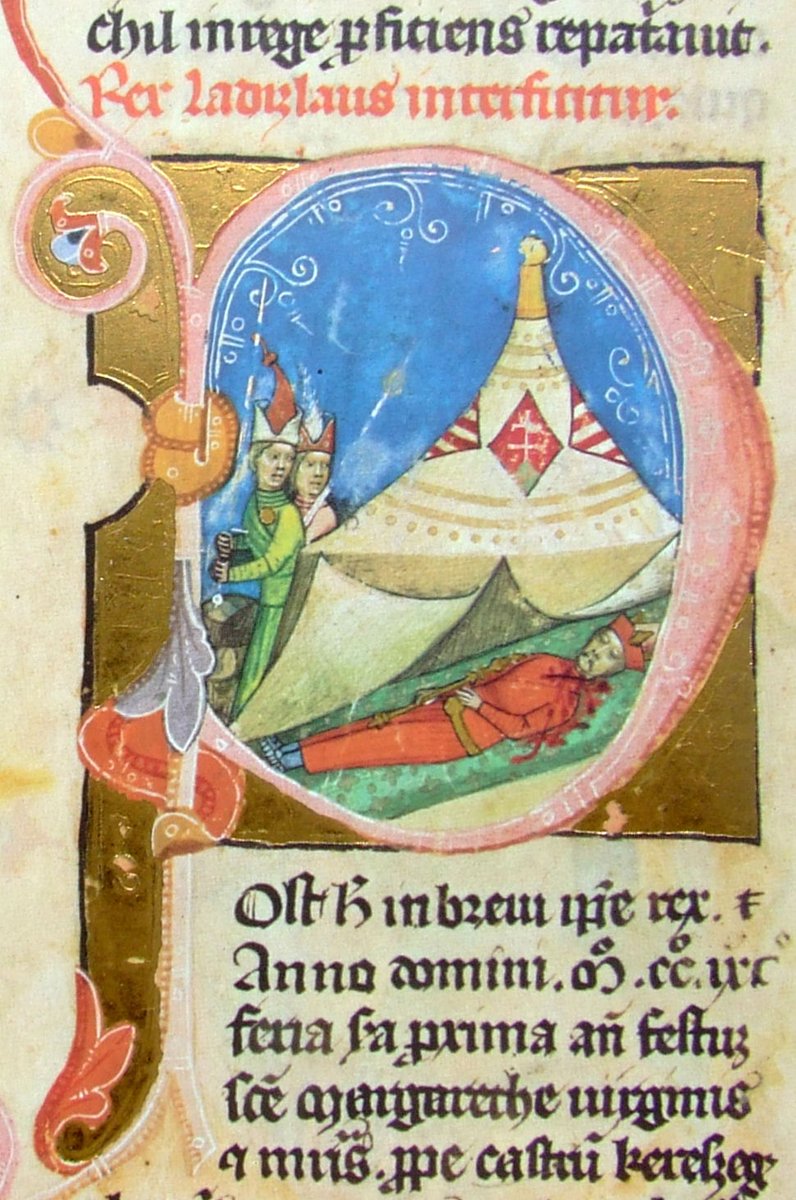 chil in rege ꝑficiens repat̄auit.
Rex ladizlaus interficitur.
Ost h̄ in breui ip̄e rex.
Anno domini. Mͦ. ccͦ. lxc
feria s̄a ꝓxima an̄ festuꝫ
sc̄e Margarethe uirginis
⁊ mr̄is. ꝓpe castrū kerezzeg